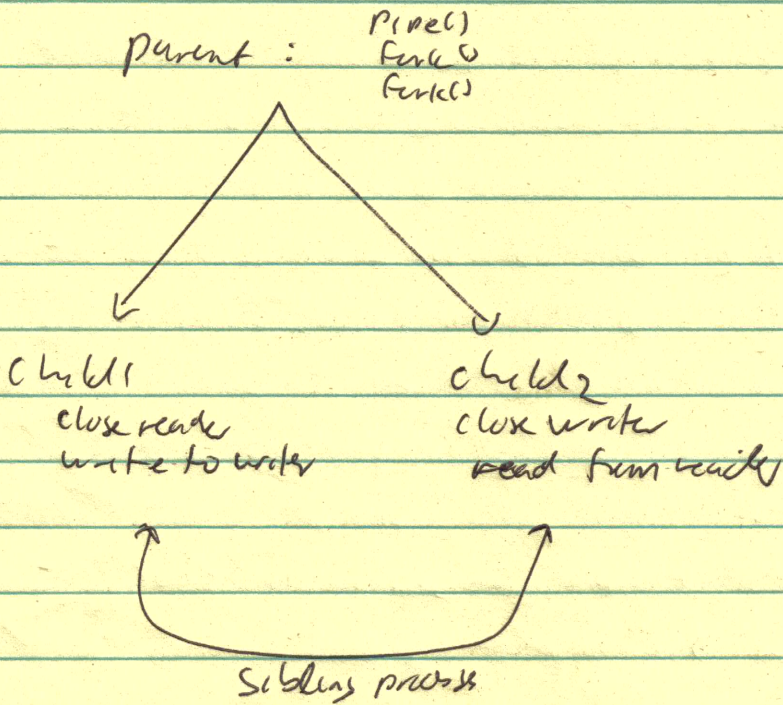 parent :
pipe()
fork()
fork()
child1
close reader
write to writer
child2
close writer
read from reader
Sibling process